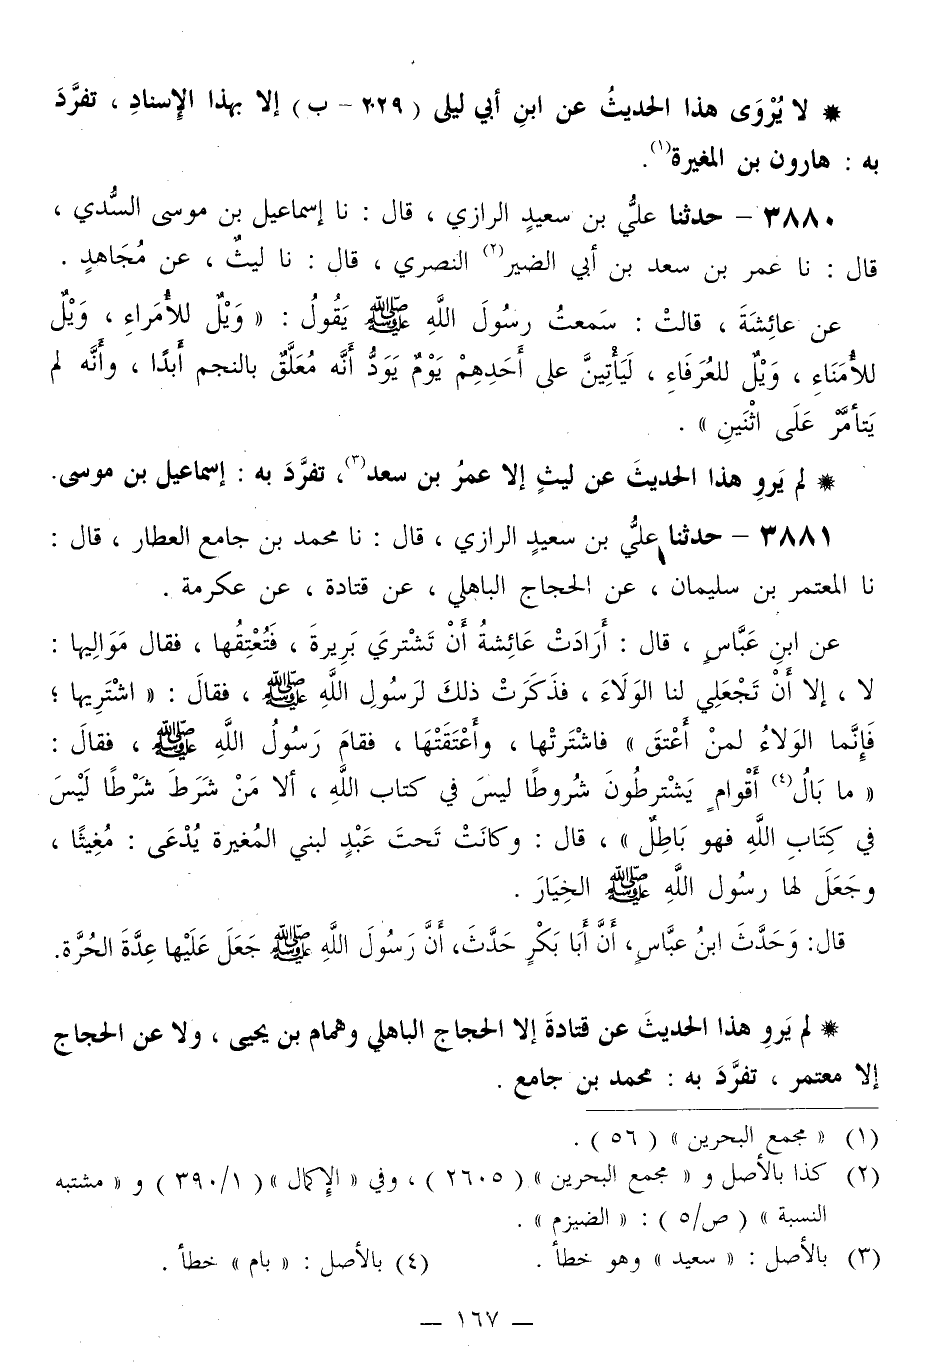 * لا يُرْوَى هذا الحديثُ عن ابنِ أبي ليلى ( ٢٠٢٩ - ب ) إلا بهذا الإِسنادِ ، تفرَّدَ
به : هارون بن المغيرة(١).
٣٨٨٠ - حدثنا عليُّ بن سعيدٍ الرازي ، قال : نا إسماعيل بن موسى السُّدي ،
قال : نا عمر بن سعد بن أبي الضير(٢) النصري ، قال : نا ليثٌ ، عن مُجَاهدٍ .
عن عائِشَةَ ، قالتْ : سَمعتُ رسُولَ اللَّهِ ﷺ يَقُولُ : « وَيْلٌ للأُمَراءِ ، وَيْلٌ
للأُمَنَاءِ ، وَيْلٌ للعُرَفَاءِ ، لَيَأْتِينَّ على أَحَدِهِمْ يَوْمٌ يَوَدُّ أَنَّه مُعَلَّقٌ بالنجم أَبدًا ، وأَنَّه لم
يَتأمَّرْ عَلَى اثْنَينِ » .
* لم يَروِ هذا الحديثَ عن ليثٍ إلا عمرُ بن سعد(٣)، تفرَّدَ به : إسماعيل بن موسى.
٣٨٨١ - حدثنا عليُّ بن سعيدٍ الرازي ، قال : نا محمد بن جامع العطار ، قال :
نا المعتمر بن سليمان ، عن الحجاج الباهلي ، عن قتادة ، عن عكرمة .
عن ابنِ عَبَّاسٍ ، قال : أَرَادَتْ عَائِشةُ أَنْ تَشْتريَ بَرِيرةَ ، فَتُعْتِقُها ، فقال مَوَالِيها :
لا ، إلا أَنْ تَجْعَلِي لنا الوَلَاءَ ، فذَكَرَتْ ذلكَ لرَسُولِ اللَّهِ ﷺ ، فقالَ : « اشْتَرِيها ؛
فَإِنَّما الوَلاءُ لمنْ أَعْتقَ » فاشْتَرتْها ، وأَعْتَقَتْهَا ، فقامَ رَسُولُ اللَّهِ ﷺ ، فقالَ :
« ما بَالُ(٤) أَقْوامٍ يَشْترِطُونَ شُروطًا ليسَ في كتاب اللَّهِ ، ألا مَنْ شَرَطَ شَرْطًا لَيْسَ
في كِتَابِ اللَّهِ فهو بَاطِلٌ » ، قال : وكانَتْ تَحتَ عَبْدٍ لبني المُغيرة يُدْعَى : مُغِيثًا ،
وجَعَلَ لها رسُول اللَّهِ ﷺ الخِيَارَ .
قال: وَحَدَّثَ ابنُ عبَّاسٍ، أَنَّ أَبَا بَكْرٍ حَدَّثَ، أَنَّ رَسُولَ اللَّهِ ﷺ جَعَلَ عَلَيْها عِدَّةَ الحُرَّة.
* لم يَروِ هذا الحديثَ عن قتادةَ إلا الحجاج الباهلي وهمام بن يحيى ، ولا عن الحجاج
إلا معتمر ، تفرَّدَ به : محمد بن جامع .
(١) « مجمع البحرين » ( ٥٦ ) .
(٢) كذا بالأصل و « مجمع البحرين » ( ٢٦٠٥ ) ، وفي « الإِكمال » ( ٣٩٠/١ ) و « مشتبه
النسبة » ( ص/٥ ) : « الضيزم » .
(٣) بالأصل : « سعيد » وهو خطأ . (٤) بالأصل : « بام » خطأ .
— ١٦٧ —